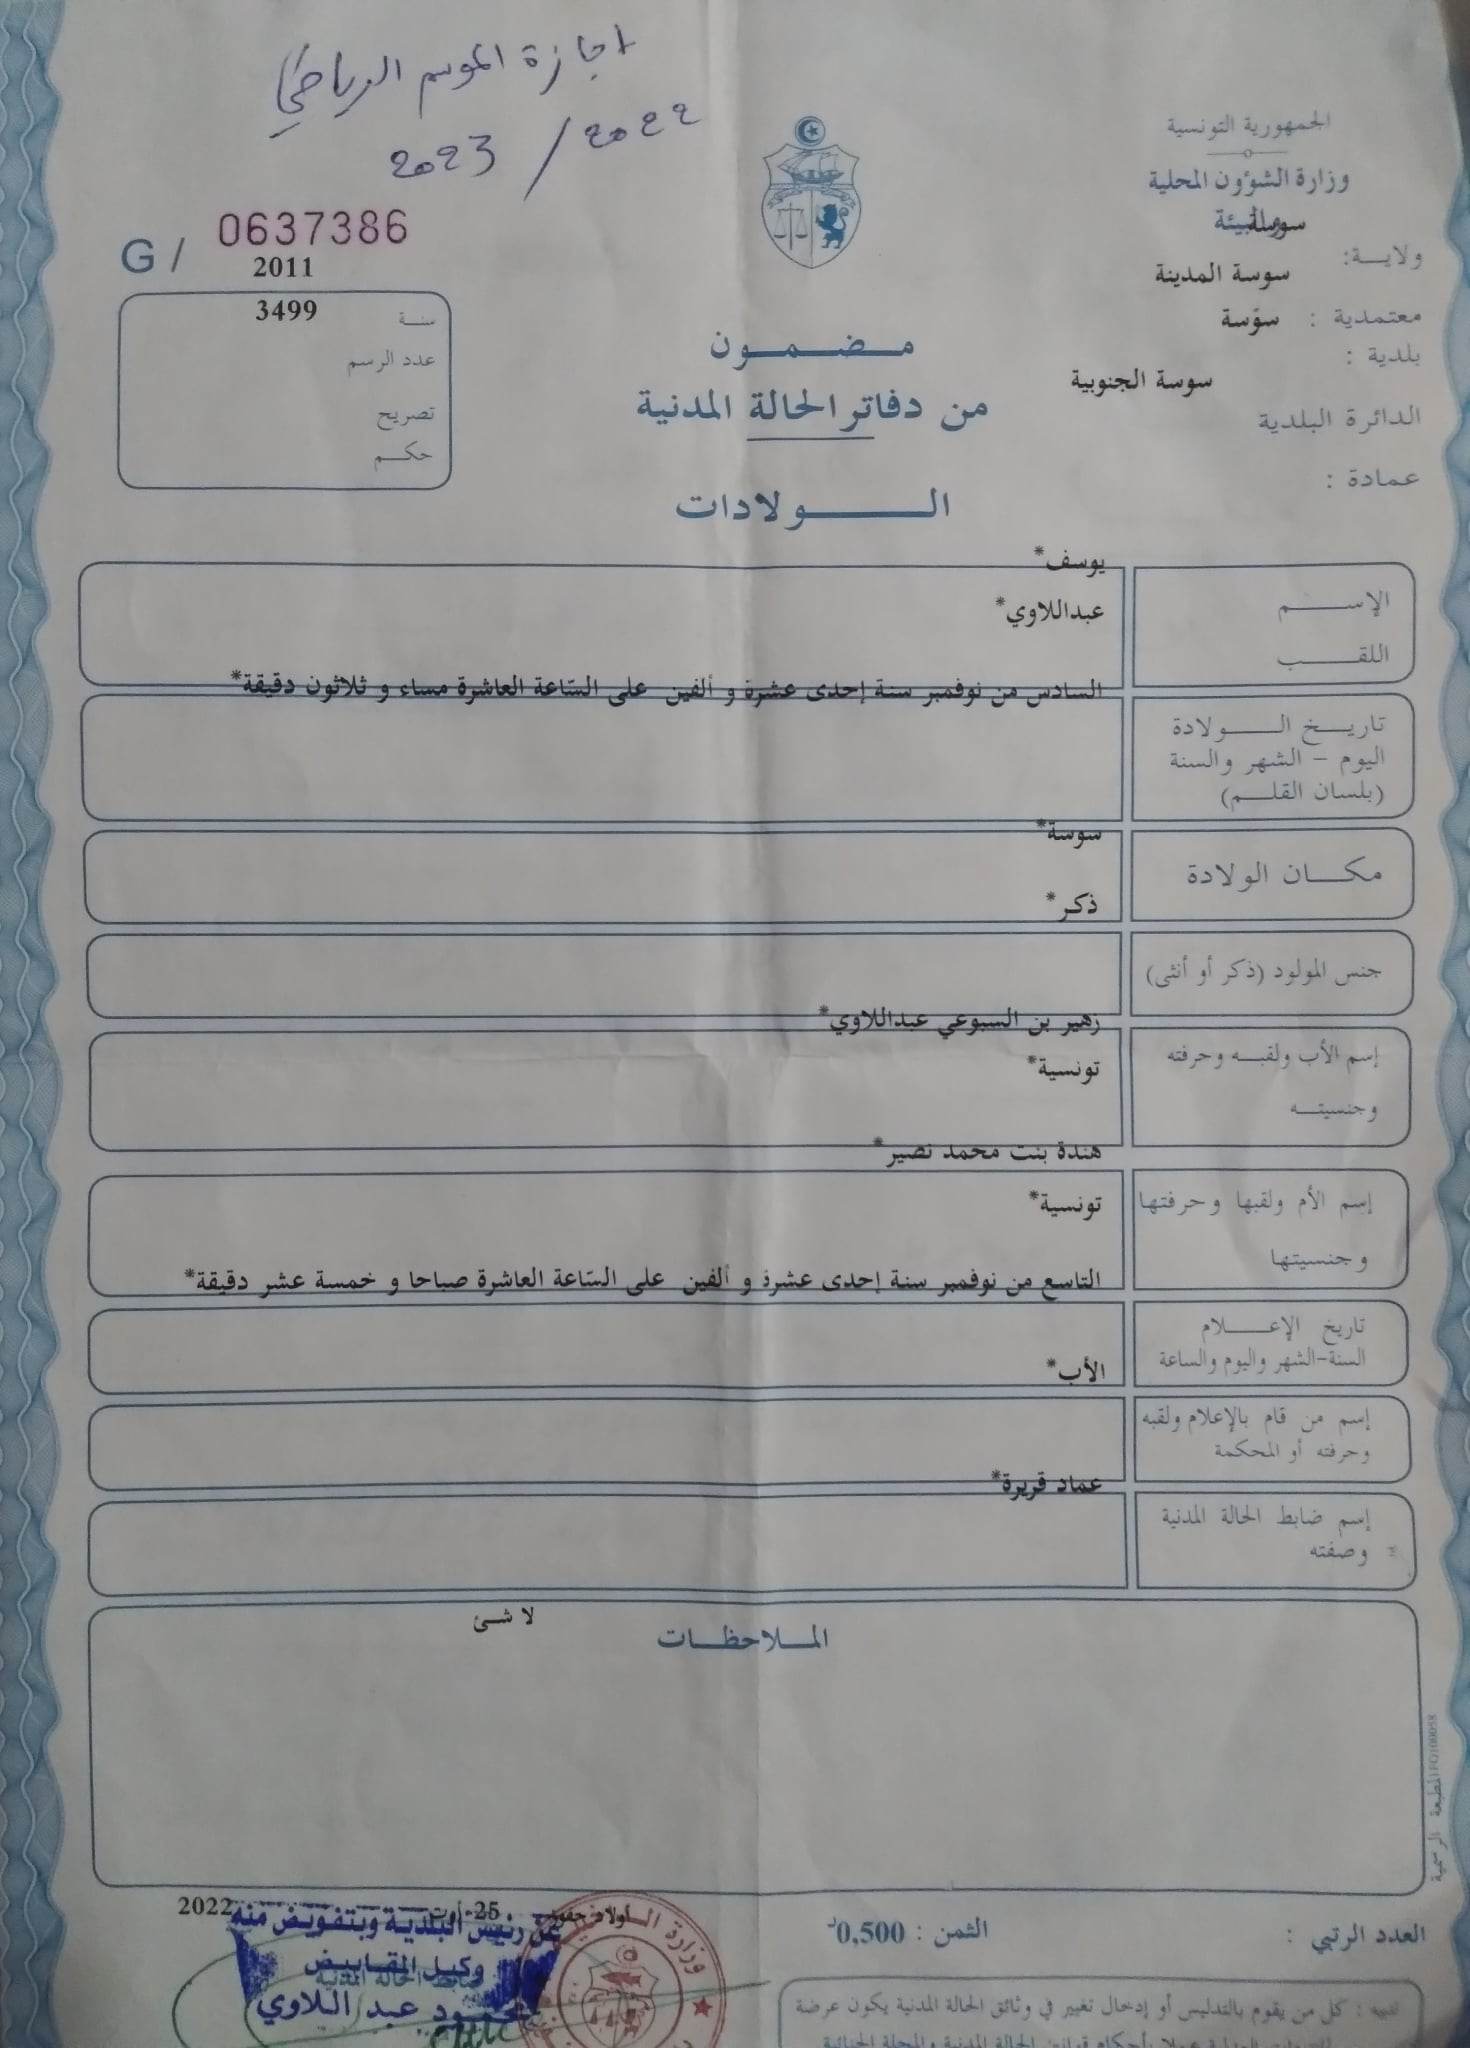 اجازة الموسم الرياضي
2023 / 2022
الجمهورية التونسية
وزارة الشؤون المحلية
والبيئة
سوسة
ولايـــة:
سوسة المدينة
معتمدية : سوّسة
بلدية :
سوسة الجنوبية
الدائرة البلدية
عمادة :
G / 0637386
2011
3499
سنـة
عدد الرسم
تصريح
حكـم
مـضـمـون
من دفاتر الحالة المدنية
الــولادات
يوسف*
الإســـم
عبداللاوي*
اللقـــب
السادس من نوفمبر سنة إحدى عشرة و ألفين على السّاعة العاشرة مساء و ثلاثون دقيقة*
تاريـــخ الـــولادة
اليوم – الشهر والسنة
(بلسان القلـــم)
سوسة*
مكـــان الولادة
ذكر*
جنس المولود (ذكر أو أنثى)
زهير بن السبوعي عبداللاوي*
إسم الأب ولقبـــه وحرفته
تونسية*
وجنسيتـــه
هندة بنت محمد نصير*
إسم الأم ولقبها وحرفتها
تونسية*
وجنسيتها
التاسع من نوفمبر سنة إحدى عشرة و ألفين على السّاعة العاشرة صباحا و خمسة عشر دقيقة*
تاريخ الإعـــلام
السنة-الشهر واليوم والساعة
الأب*
إسم من قام بالإعلام ولقبه
وحرفته أو المحكمة
عماد قريرة*
إسم ضابط الحالة المدنية
وصفته
لا شئ
المـــلاحظـــات
المطبعة الرسمية
العدد الرتبي :
الثمن : 0,500د
أولاد حفوز
25 أوت 2022
عن رئيس البلدية وبتفويض منه
وكيل المقابيض
ضابط الحالة المدنية
عبد اللاوي
وزارة
تنبيه : كل من يقوم بالتدليس أو إدخال تغيير في وثائق الحالة المدنية يكون عرضة
عملا بأحكام قوانين الحالة المدنية والمجلة الجنائية